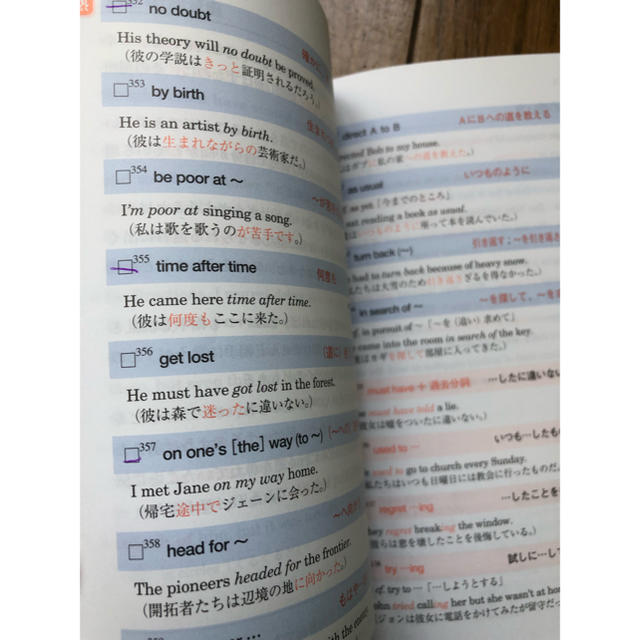 352 no doubt
His theory will no doubt be proved.
(彼の学説はきっと証明されるだろう。)
353 by birth
He is an artist by birth.
(彼は生まれながらの芸術家だ。)
354 be poor at ～
～が
I'm poor at singing a song.
(私は歌を歌うのが苦手です。)
355 time after time
何度も
He came here time after time.
(彼は何度もここに来た。)
356 get lost
He must have got lost in the forest.
(彼は森で迷ったに違いない。)
357 on one's [the] way (to ～)
I met Jane on my way home.
(帰宅途中でジェーンに会った。)
358 head for ～
The pioneers headed for the frontier.
(開拓者たちは辺境の地に向かった。)
direct A to B
AにBへの道を教える
Bob to my house.
as usual
いつものように
as yet「今までのところ」
reading a book as usual.
いつものように座って本を読んでいた。)
turn back (～)
引き返す；～を引き返
had to turn back because of heavy snow.
たちは大雪のため引き返さざるを得なかった。)
in search of ～
～を探して，～を
in pursuit of ～「～を(追い)求めて」
came into the room in search of the key.
はカギを探して部屋に入ってきた。)
must have + 過去分詞
…したに違いない
must have told a lie.
は嘘をついたに違いない。)
used to …
いつも…したも
used to go to church every Sunday.
たちはいつも日曜日には教会に行ったものだ
regret …ing
…したことを
regret breaking the window.
らは窓を壊したことを後悔している。)
try …ing
試しに…し
cf. try to …「…しようとする」
tried calling her but she wasn't at hom
ジョンは彼女に電話をかけてみたが留守だっ